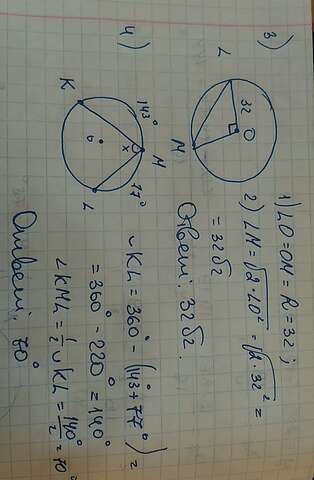 3)
L
32
O
M
1) LO=OM=R=32;
2) LM=√2·LO² = √2·32² =
= 32√2
Ответ: 32√2.
4)
K
143°
M
x
O
77°
L
∪KL=360°-(143°+77°)=
=360°-220°=140°
∠KML=1/2∪KL=140°/2=70°
Ответ: 70°